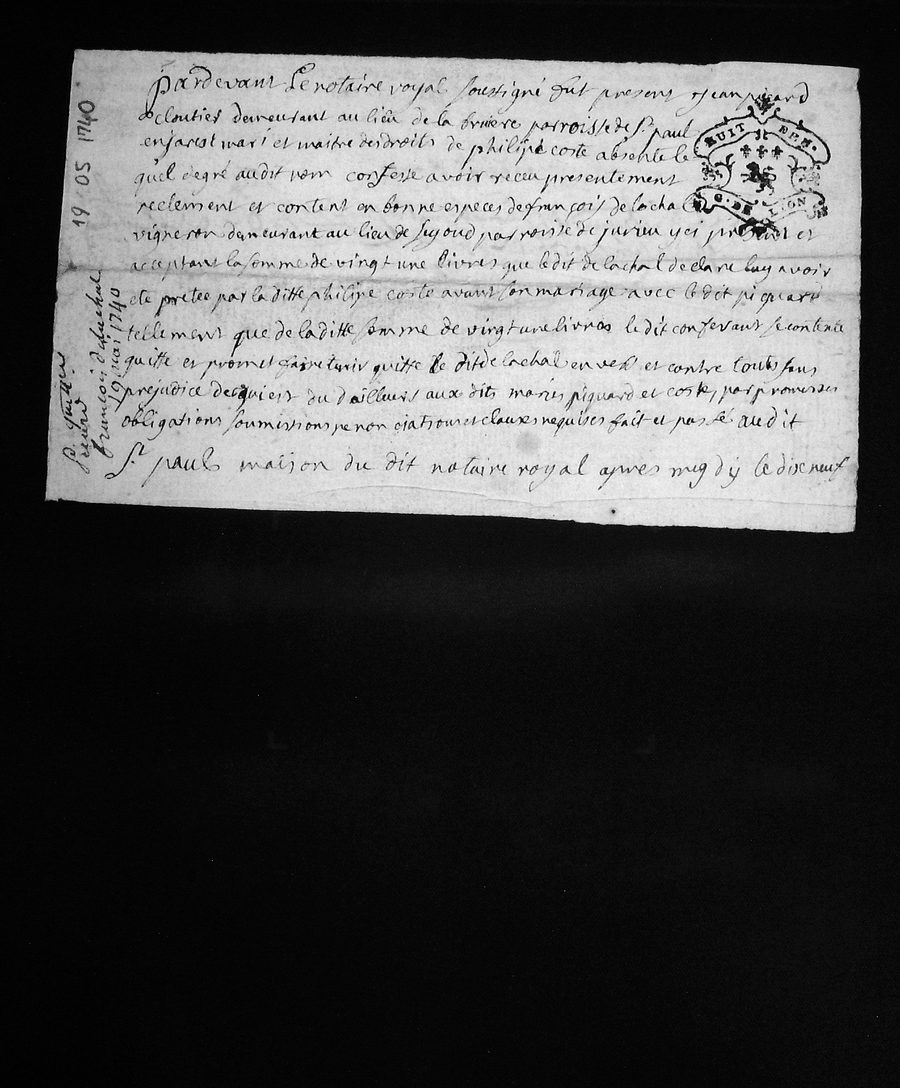 pardevant Le notaire royal soussigné fut present Jean picard
cloutier demeurant au lieu de la bruiere parroisse de St paul
en jarest mari et maitre des droits de philipe coste absente le
quel degré audit nom confesse avoir receu presentement
reelement et content en bonne especes de françois delachal
vigneron demeurant au lieu de parroisse de jurieu yci present et
acceptant la somme de vingt une livres que le dit delachal declare luy avoir
ete pretée par la ditte philipe coste avant son mariage avec le dit piquard
tellement que de la ditte somme de vingt une livres le dit confessant se contente
quitte et promet faire tenir quitte le dit delachal envers et contre touts sans
prejudice de qui est du d'ailleurs aux dits maries piquard et coste, par promesses
obligations soumissions renonciations et clauses requises fait et passé au dit
St paul maison du dit notaire royal apres midy le dixneuf
HUIT DEN.
G. DE LYON
19 05 1740
françois delachal
19 mai 1740